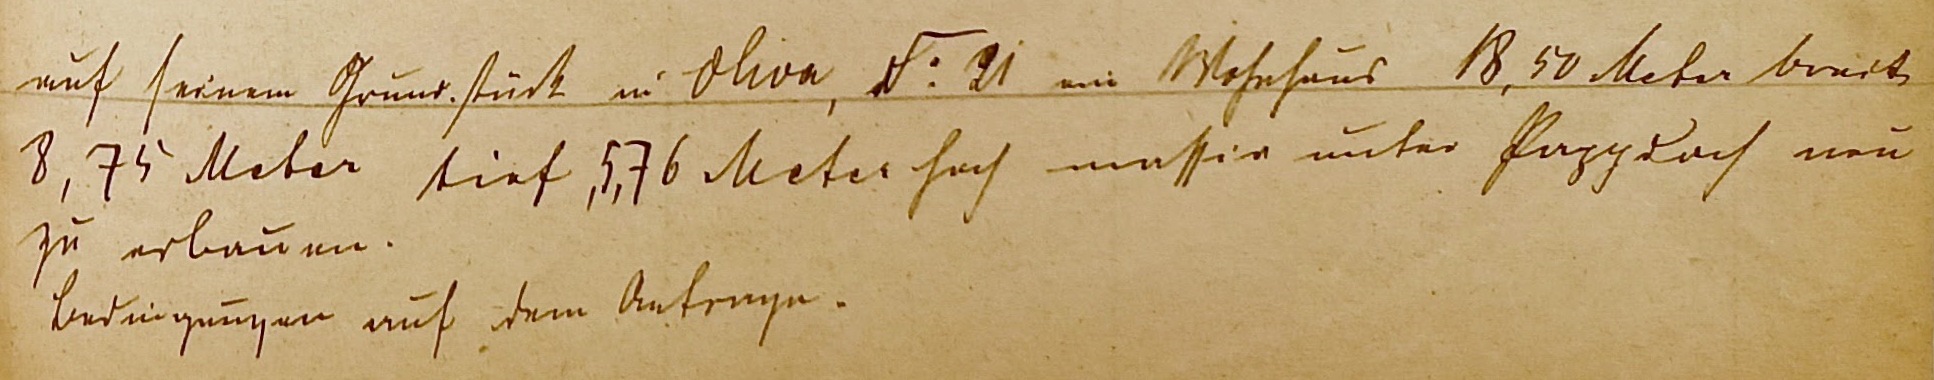 auf seinem Grundstück in Oliva, No: 21 ein Wohnhaus 18,50 Meter breit,
8,75 Meter tief, 5,76 Meter hoch massiv unter Pappdach neu
zu erbauen.
Bedingungen auf dem Antrage.